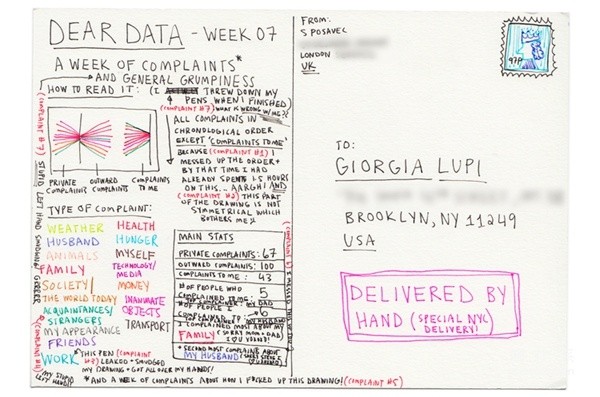 DEAR DATA - WEEK 07
A WEEK OF COMPLAINTS*
AND GENERAL GRUMPINESS
HOW TO READ IT:
(I THREW DOWN MY
PENS WHEN I FINISHED)
(COMPLAINT #7) WHAT IS WRONG W/ME?
ALL COMPLAINTS IN
CHRONOLOGICAL ORDER
EXCEPT 'COMPLAINTS TO ME'
BECAUSE (COMPLAINT #1) I
MESSED UP THE ORDER +
BY THAT TIME I HAD
ALREADY SPENT 1.5 HOURS
ON THIS... AARGH! AND
(COMPLAINT #2) THIS PART
OF THE DRAWING IS NOT
SYMMETRICAL WHICH
BOTHERS ME
PRIVATE COMPLAINTS
OUTWARD COMPLAINTS
COMPLAINTS TO ME
(COMPLAINT #7) STUPID LEFT HAND SMUDGING
TYPE OF COMPLAINT:
WEATHER
HUSBAND
ANIMALS
FAMILY
SOCIETY/
THE WORLD TODAY
ACQUAINTANCES/
STRANGERS
MY APPEARANCE
FRIENDS
WORK
HEALTH
HUNGER
MYSELF
TECHNOLOGY/
MEDIA
MONEY
INANIMATE
OBJECTS
TRANSPORT
MAIN STATS
PRIVATE COMPLAINTS: 67
OUTWARD COMPLAINTS: 100
COMPLAINTS TO ME: 43
# OF PEOPLE WHO
COMPLAINED TO ME: 5
TOP COMPLAINER: MY DAD
# OF PEOPLE I
COMPLAINED TO: 6
MY HUSBAND
I COMPLAINED MOST ABOUT MY
FAMILY (SORRY MOM + DAD)
I ♥ U
SECOND MOST COMPLAINED ABOUT
MY HUSBAND
*THIS PEN (COMPLAINT
LEAKED + SMUDGED
MY DRAWING + GOT ALL OVER MY HANDS!
MY STUPID
LEFT HAND!!
*AND A WEEK OF COMPLAINTS ABOUT HOW I F*CKED UP THIS DRAWING! (COMPLAINT #5)
FROM:
S POSAVEC
LONDON
UK
97P
TO:
GIORGIA LUPI
BROOKLYN, NY 11249
USA
DELIVERED BY
HAND (SPECIAL NYC
DELIVERY!)